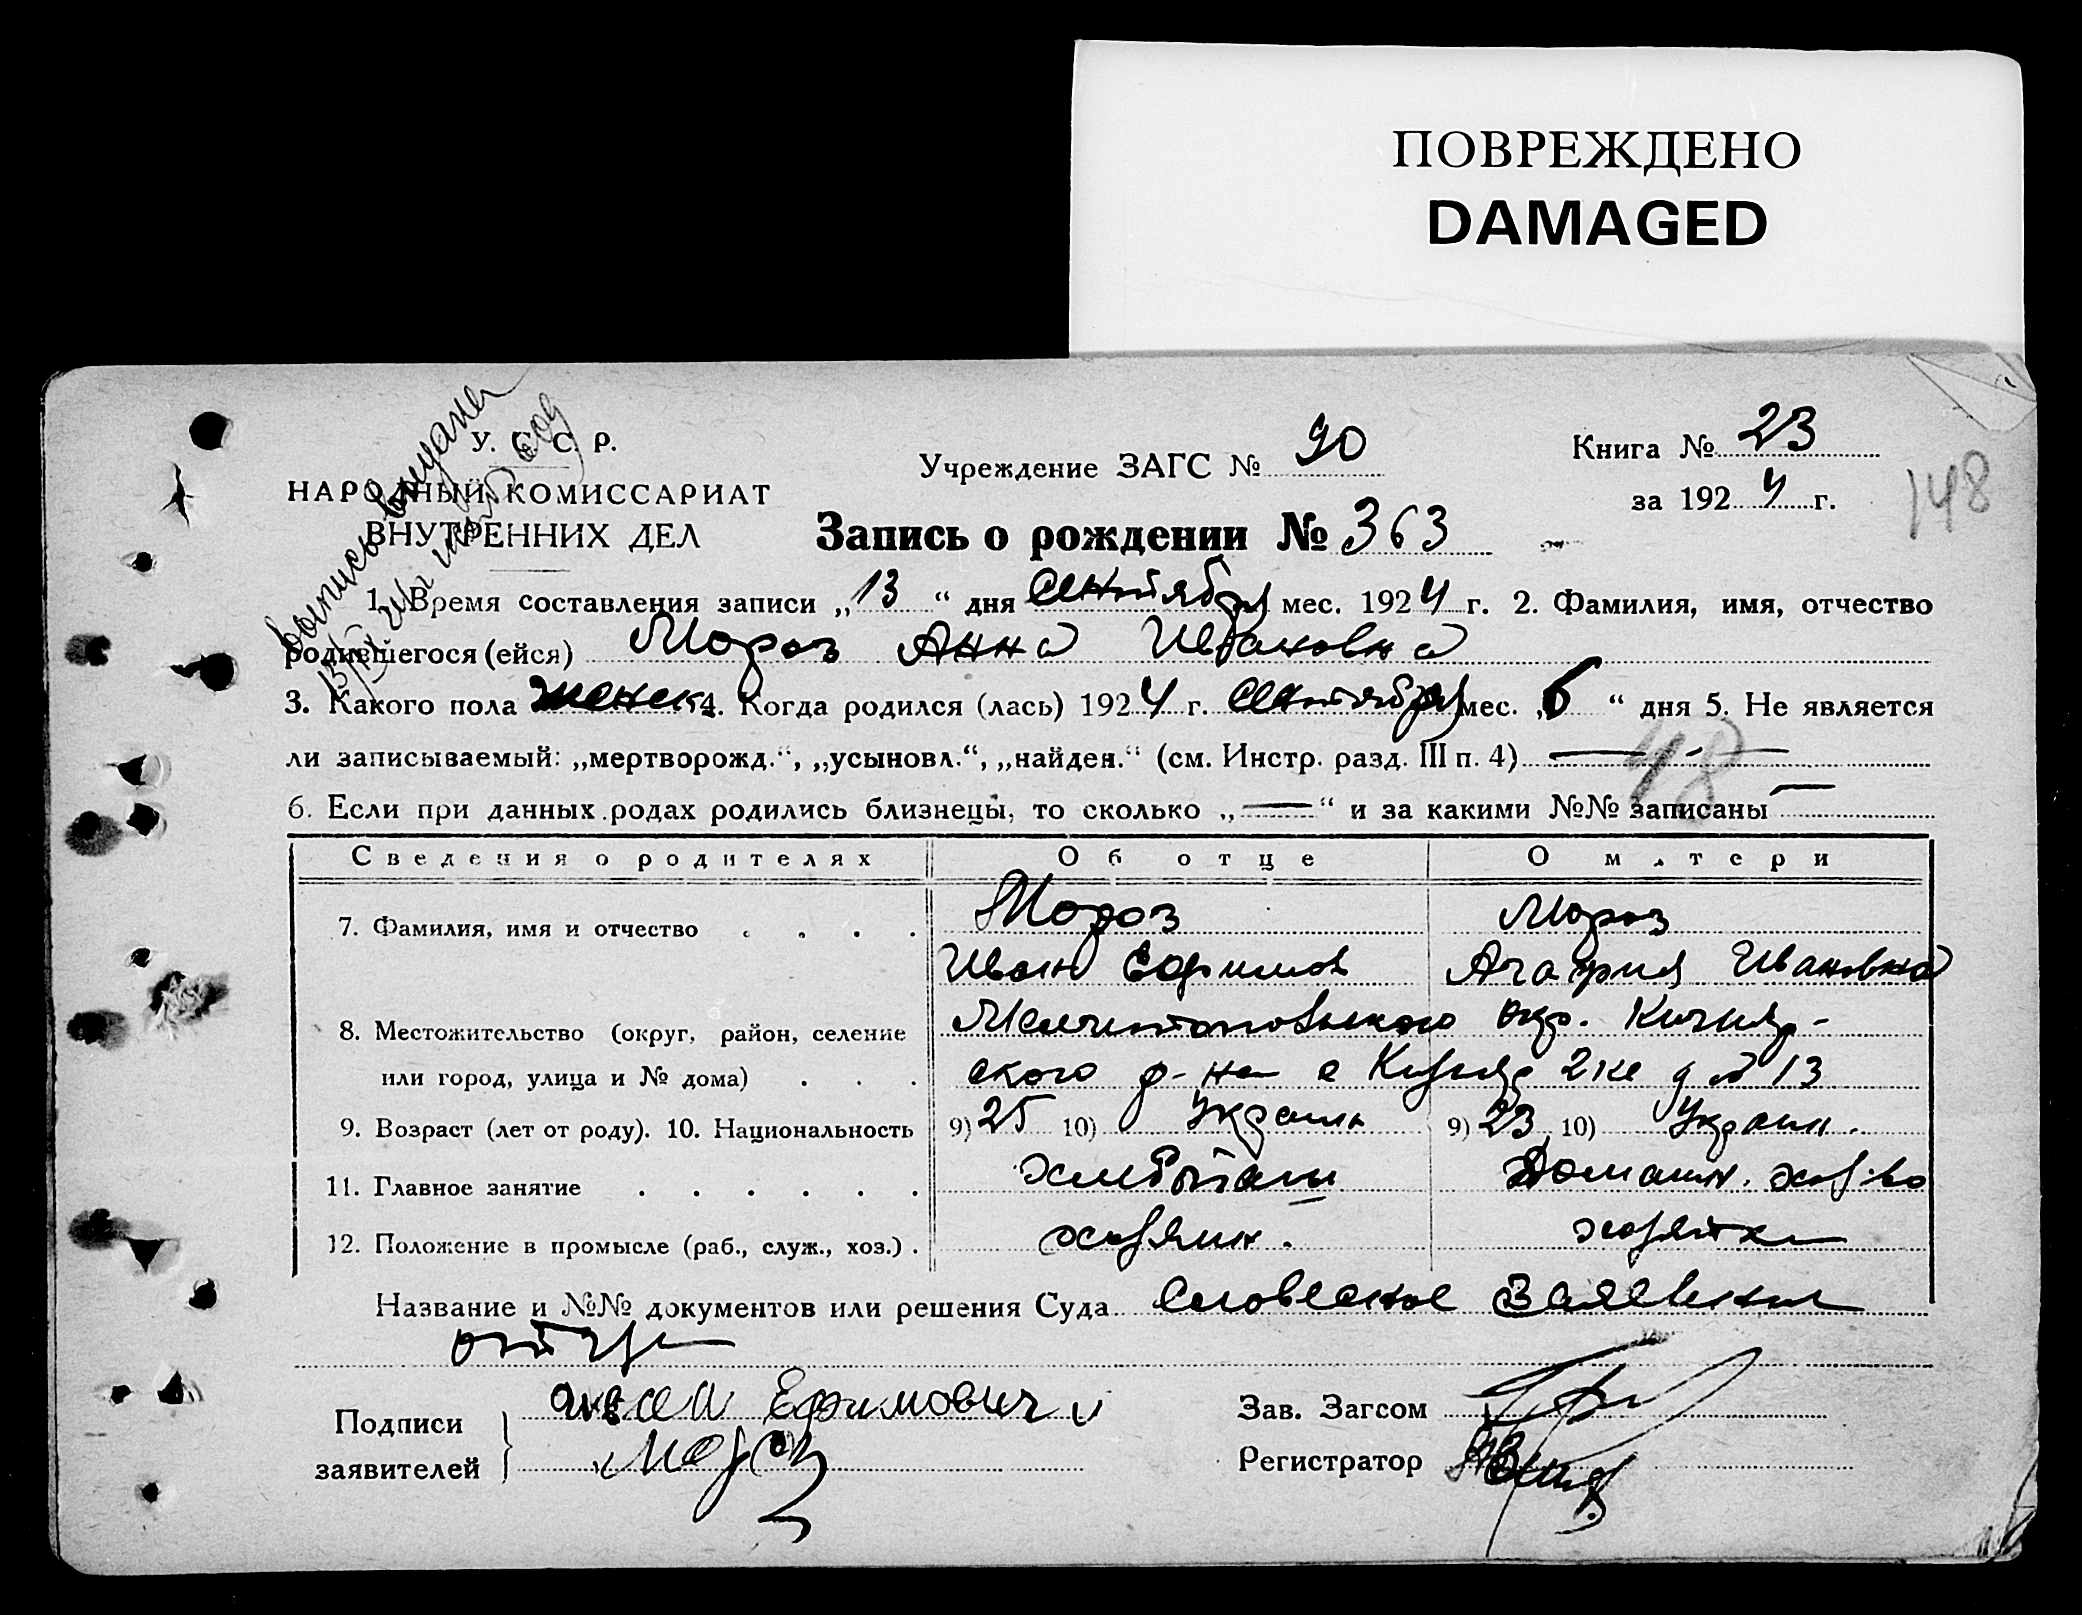 ПОВРЕЖДЕНО
DAMAGED
У. С. С. Р.
НАРОДНЫЙ КОМИССАРИАТ
ВНУТРЕННИХ ДЕЛ
выпись выдана
Учреждение ЗАГС № 90
Книга № 23
за 1924 г.
148
Запись о рождении № 363
1. Время составления записи „13“ дня Сентября мес. 1924 г. 2. Фамилия, имя, отчество
родившегося (ейся) Мороз Анна Ивановна
3. Какого пола женск 4. Когда родился (лась) 1924 г. Сентября мес. „6“ дня 5. Не является
ли записываемый: „мертворожд.“, „усыновл.“, „найден.“ (см. Инстр. разд. III п. 4) — - —
48
6. Если при данных родах родились близнецы, то сколько „—“ и за какими №№ записаны —
Сведения о родителях Об отце О матери
7. Фамилия, имя и отчество . . . . Мороз Мороз
Иван Ефимов Агафия Ивановна
8. Местожительство (округ, район, селение Мелитопольского окр. Кизияр-
или город, улица и № дома) . . . ского р-на с Кизияр 2 ке д № 13
9. Возраст (лет от роду). 10. Национальность 9) 25 10) Украин 9) 23 10) Украин.
11. Главное занятие . . . . . . хлебопаш Домашн. хоз-во
12. Положение в промысле (раб., служ., хоз.) . хозяин. хозяйка
Название и №№ документов или решения Суда Словесное Заявление
отца
Подписи
заявителей
Иван Ефимович
Мороз
Зав. Загсом
Регистратор